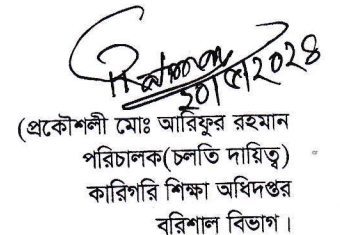 ২০/৫/২০২৪
(প্রকৌশলী মোঃ আরিফুর রহমান
পরিচালক(চলতি দায়িত্ব)
কারিগরি শিক্ষা অধিদপ্তর
বরিশাল বিভাগ।